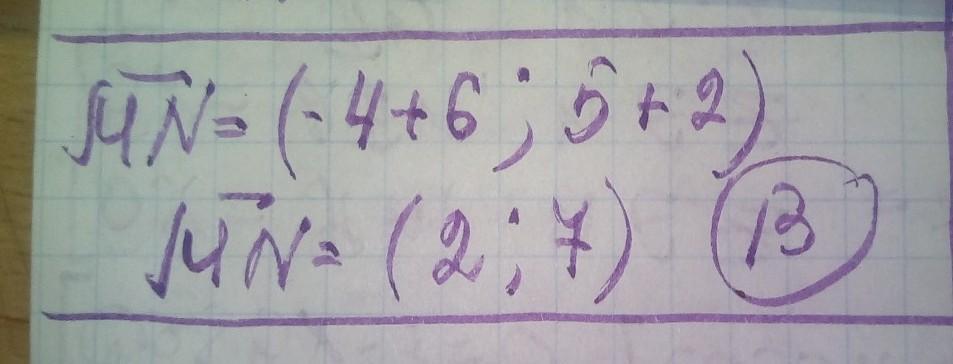 MN = (-4+6; 5+2)
MN = (2; 7) B